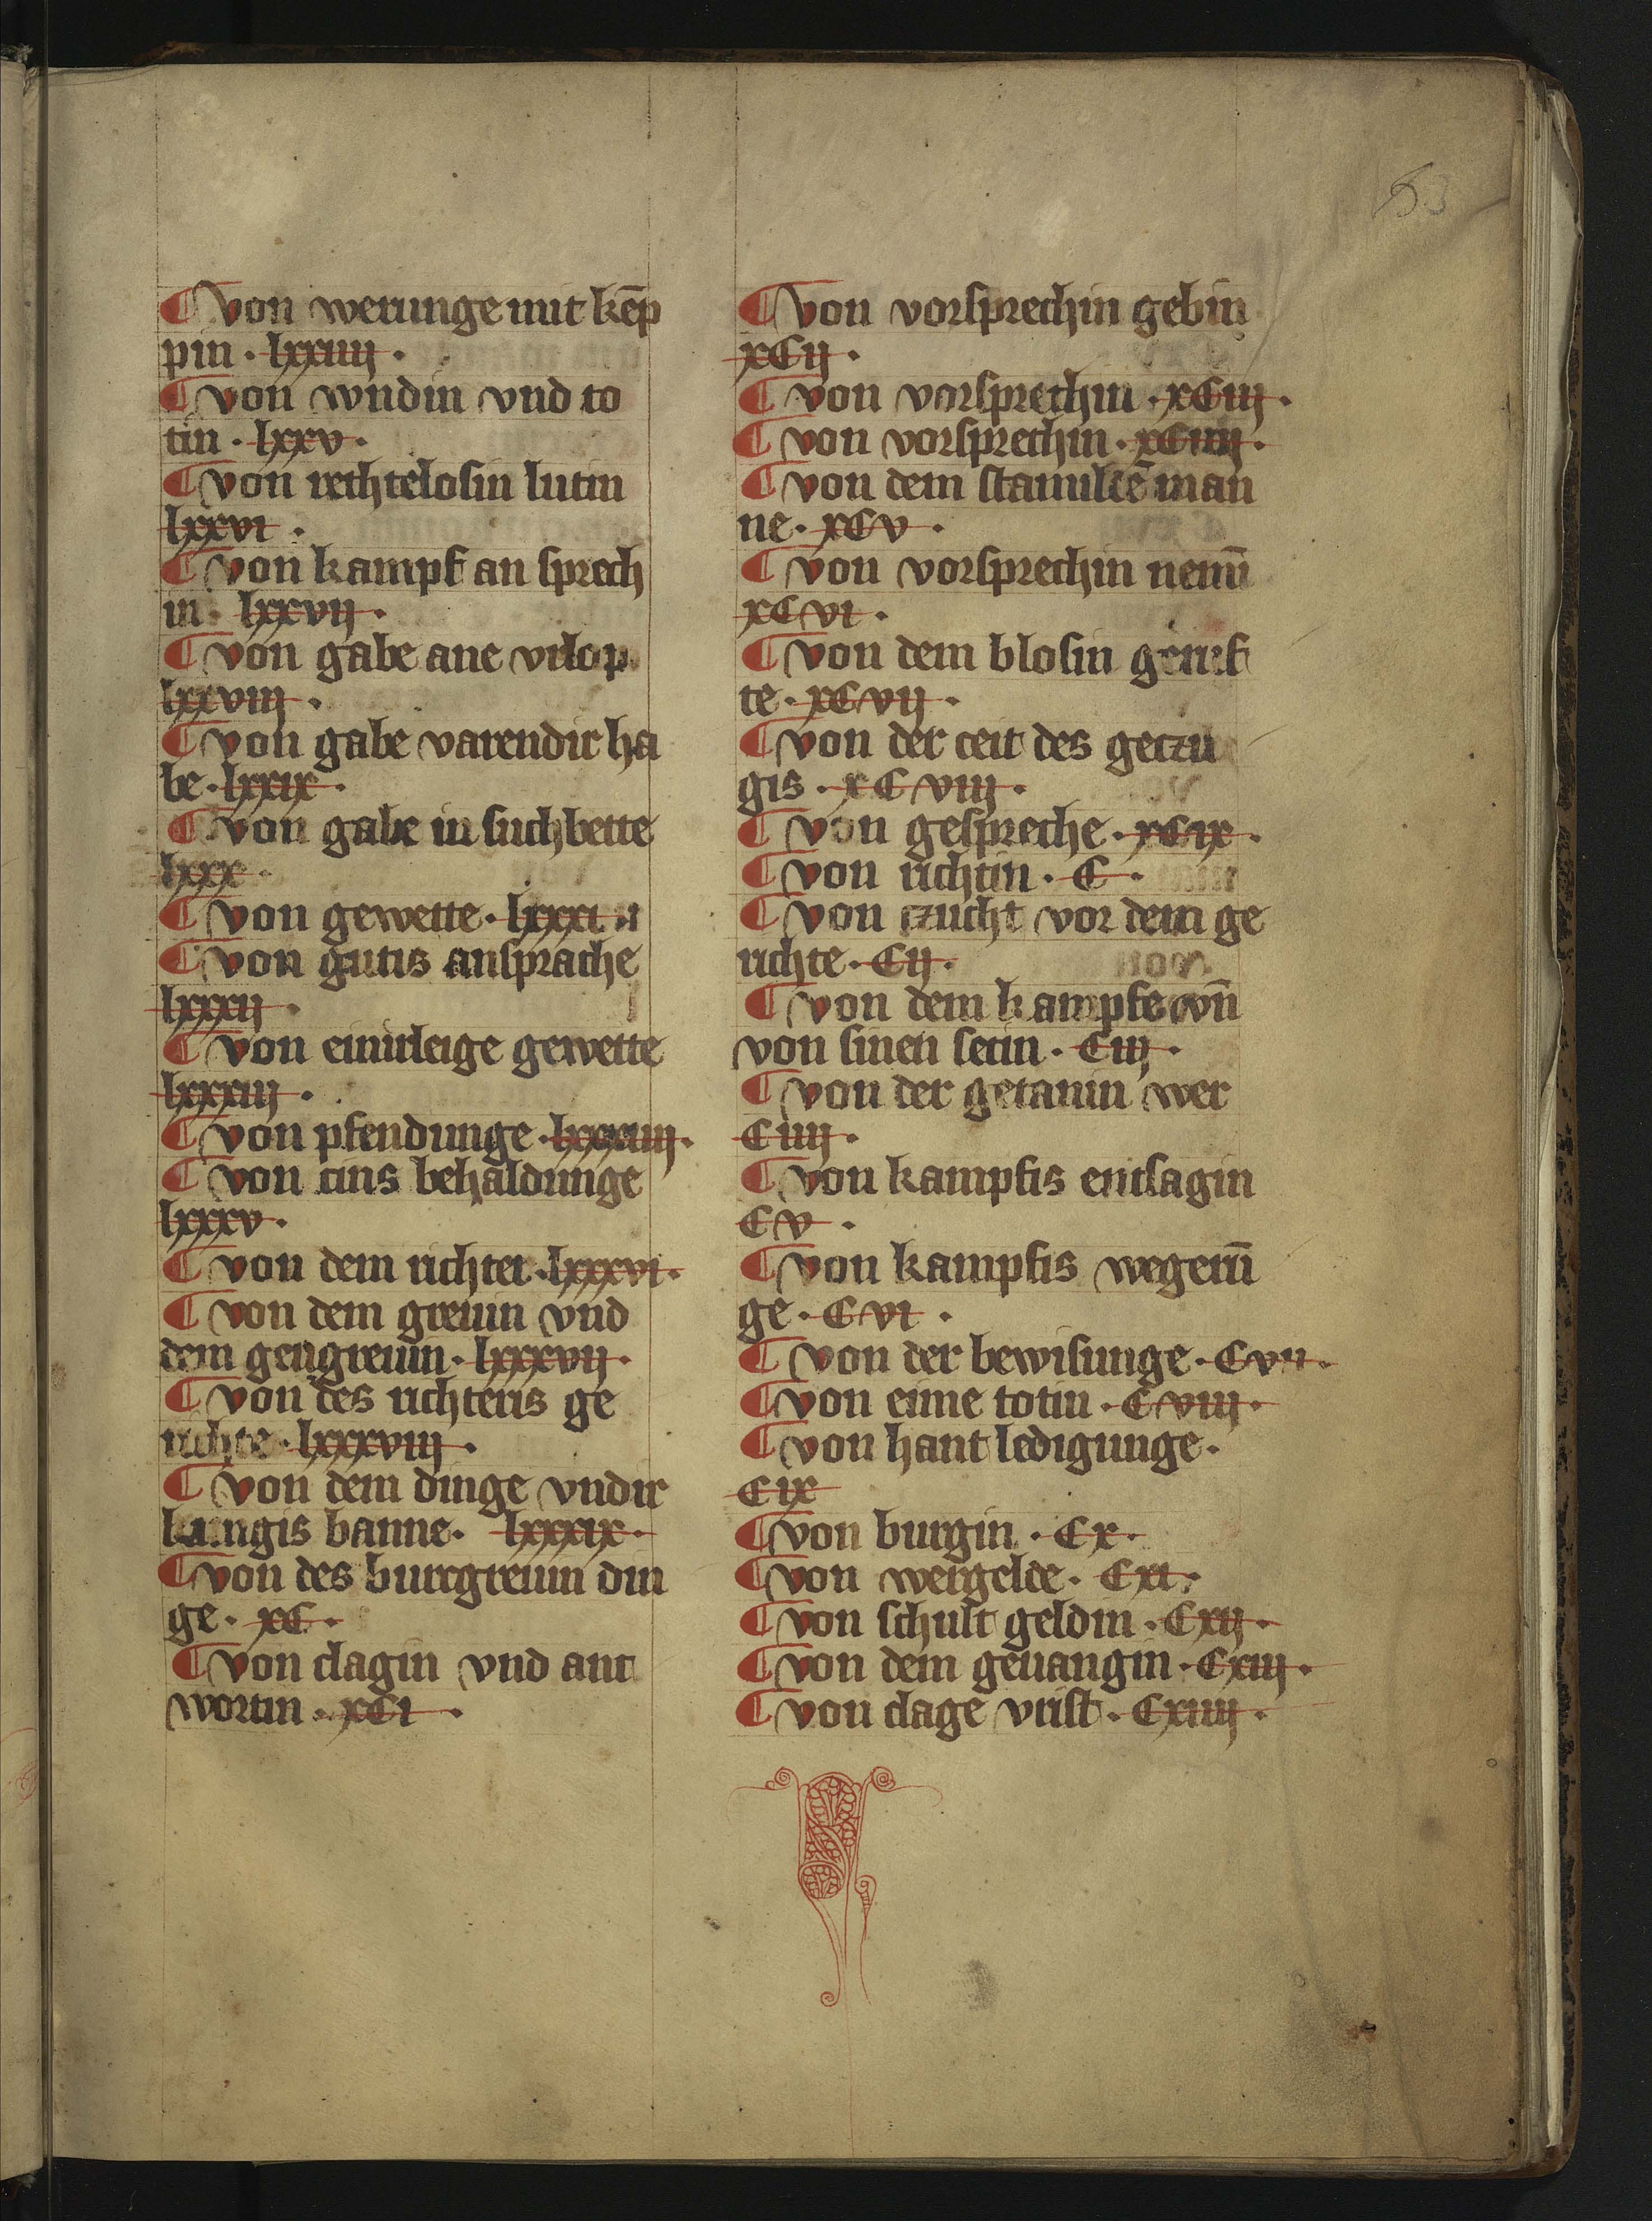 53
¶ von werunge mit kēp
pin · lxxiiij ·
¶ von wndin vnd to
tin · lxxv ·
¶ von rechtelosin lutin
lxxvi ·
¶ von kampf an sprech
in · lxxvij ·
¶ von gabe ane vrlop
lxxviij ·
¶ von gabe varendir ha
be · lxxix ·
¶ von gabe in suchbette
lxxx ·
¶ von gewette · lxxxi ·
¶ von gutis ansprache
lxxxij ·
¶ von einirleige gewette
lxxxiij ·
¶ von pfendunge · lxxxiiij ·
¶ von cins behaldunge
lxxxv ·
¶ von dem richter · lxxxvi ·
¶ von dem greuin vnd
dem gengreuin · lxxxvij ·
¶ von des richteris ge
richte · lxxxviij ·
¶ von dem dinge vndir
kungis banne · lxxxix ·
¶ von des burcgreuin din
ge · xC ·
¶ von clagin vnd ant
wortin · xCi ·
¶ von vorsprechin gebin
xCij ·
¶ von vorsprechin · xCiij ·
¶ von vorsprechin · xCiiij ·
¶ von dem stamlē man
ne · xCv ·
¶ von vorsprechin nemū
xCvi ·
¶ von dem blosin geruf
te · xCvij ·
¶ von der ceit des geczu
gis · xCviij ·
¶ von gespreche · xCix ·
¶ von richtin · C ·
¶ von czucht vor dem ge
richte · Cij ·
¶ von dem kampfe vn̄
von sinen setin · Ciij ·
¶ von der getanin wer
Ciiij ·
¶ von kampfis entsagin
Cv ·
¶ von kampfis wegerū
ge · Cvi ·
¶ von der bewisunge · Cvii ·
¶ von eime totin · Cviij ·
¶ von hant ledigunge ·
Cix
¶ von burgin · Cx ·
¶ von wergelde · Cxi ·
¶ von schult geldin · Cxij ·
¶ von dem geuangin · Cxiij ·
¶ von clage vrist · Cxiiij ·